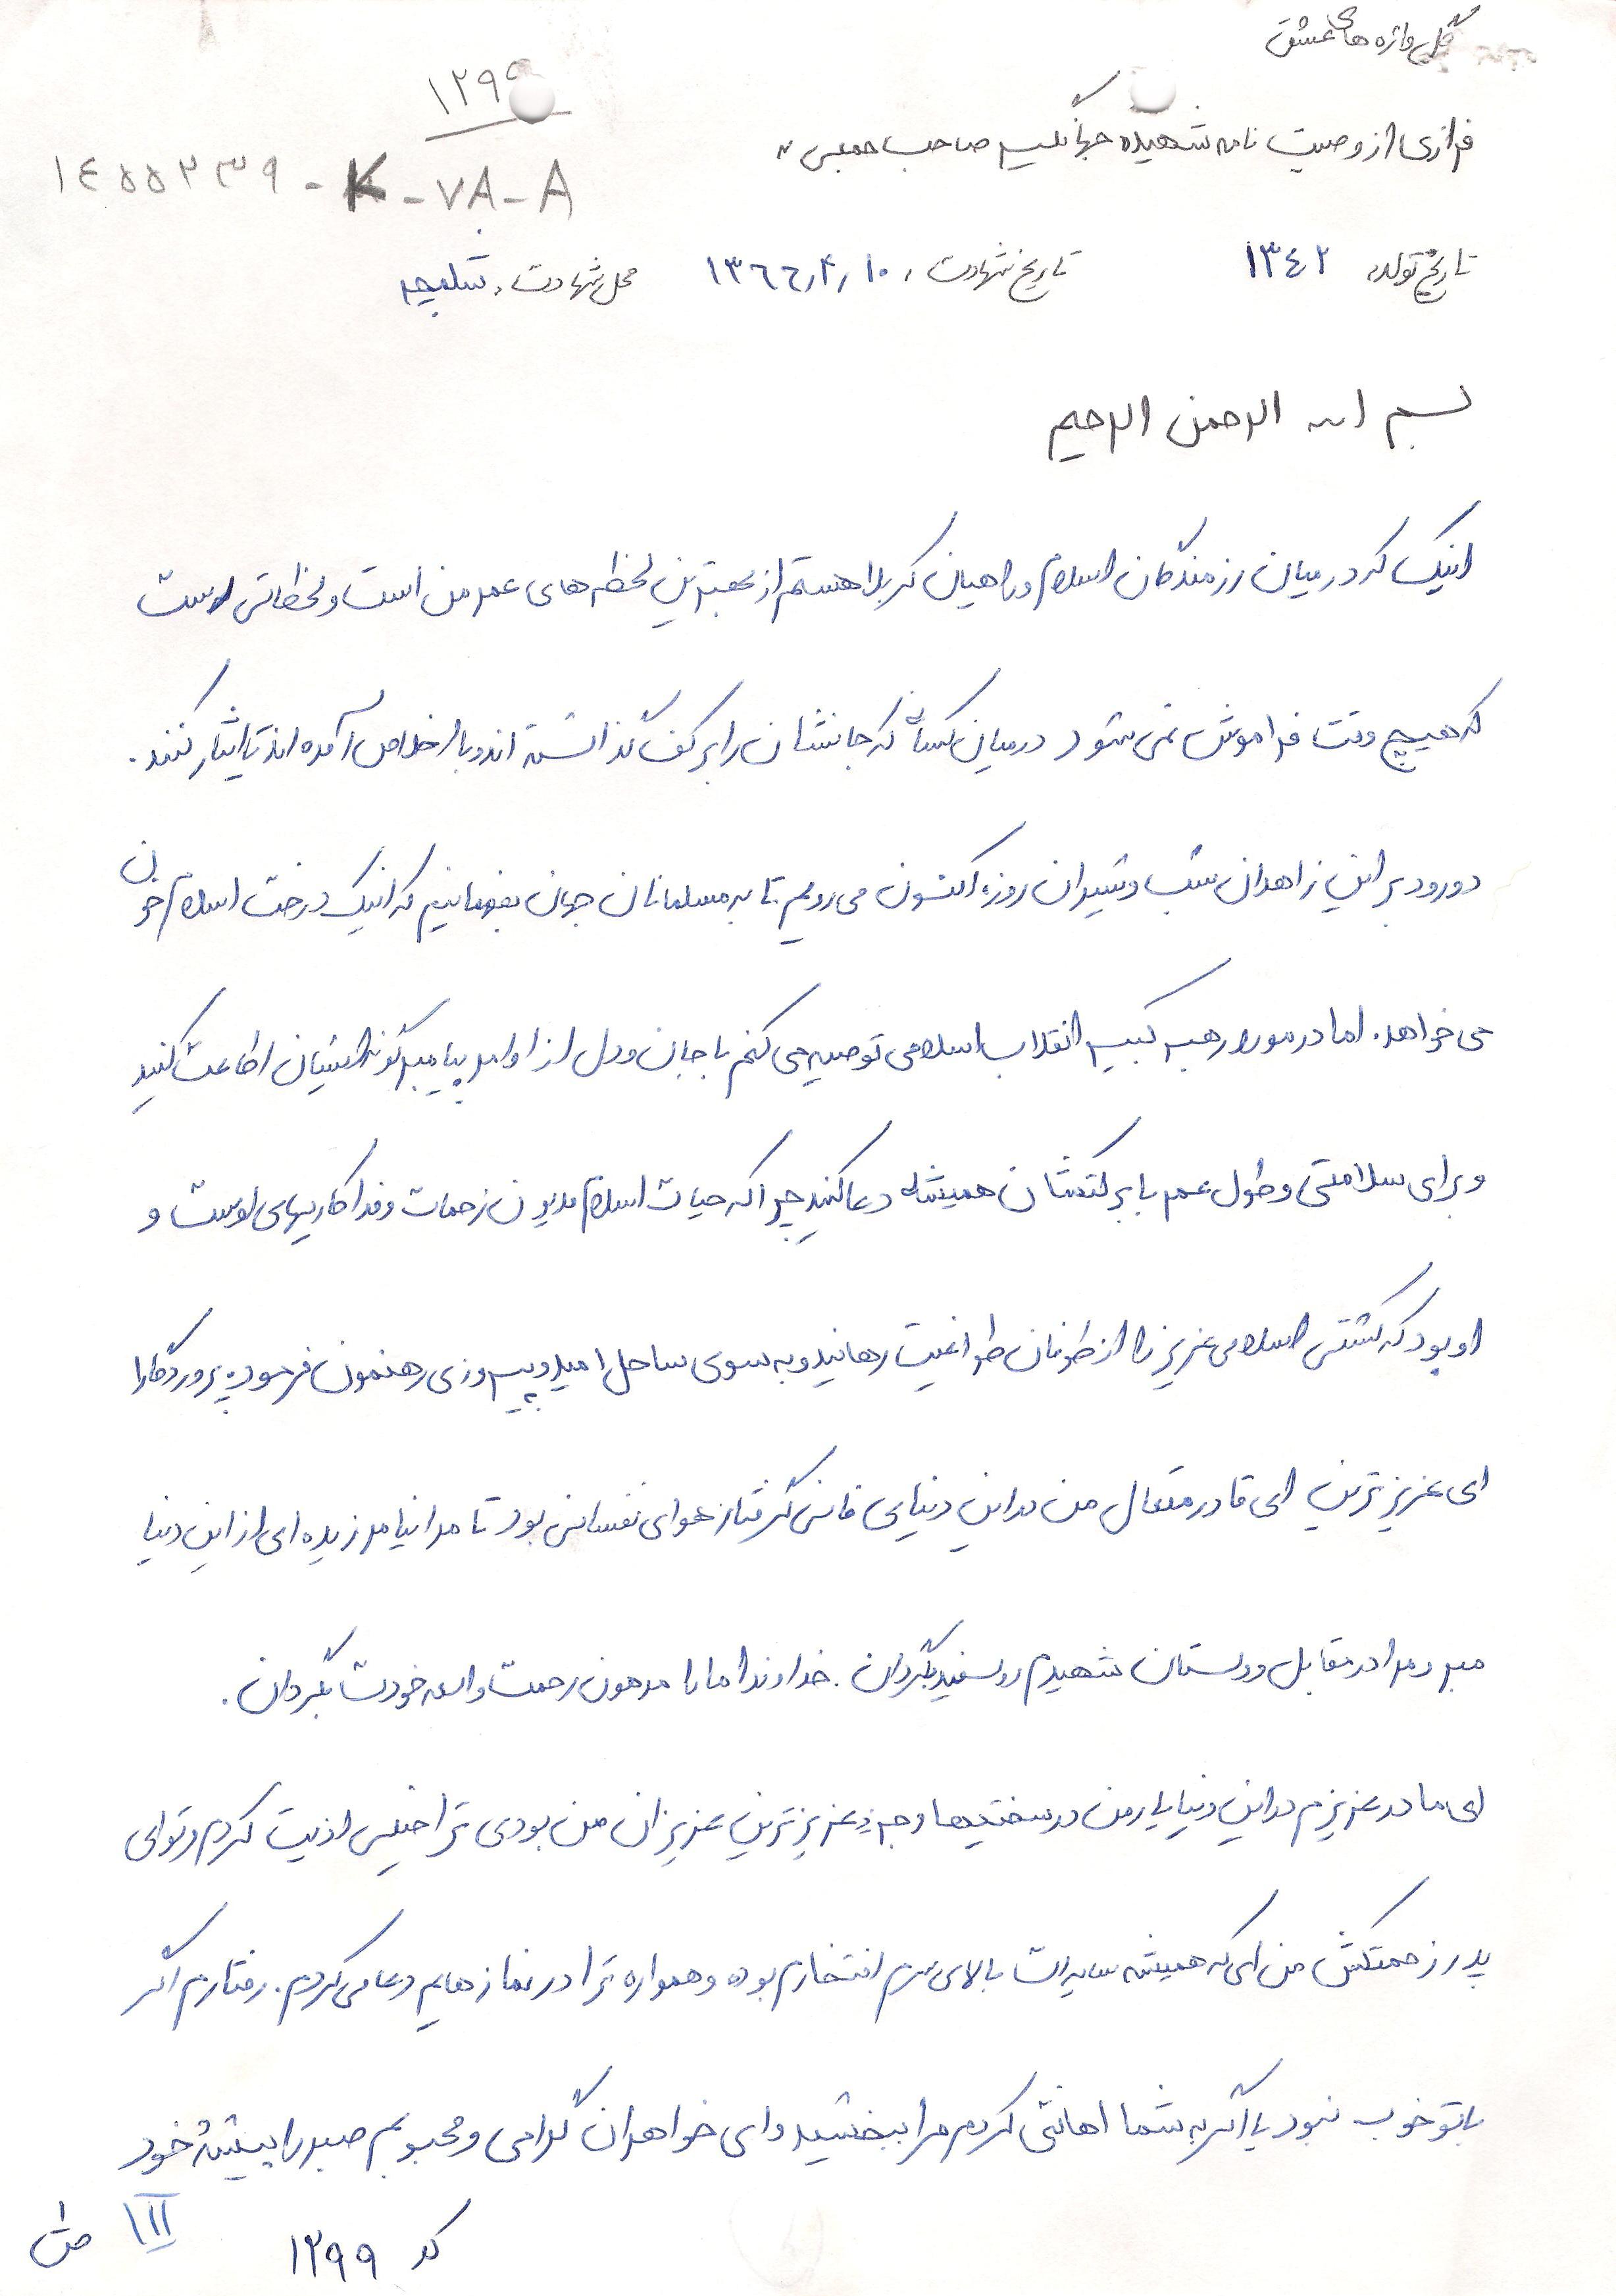 گل واژه های عشق
۱۲۹۹
فرازی از وصیت نامه شهید جهانگیر صاحب جمعی
۱۴۵۵۲۳۹ - K - ۷۸ - ۸
تاریخ تولد، ۱۳۴۲ تاریخ شهادت، ۱۳۶۶/۴/۱۰ محل شهادت، شلمچه
بسم الله الرحمن الرحیم
اینک که در میان رزمندگان اسلام و راهیان کربلا هستم از بهترین لحظه های عمر من است و لحظاتی است
که هیچ وقت فراموش نمی شود در میان کسانی که جانشان را بر کف گذاشته اند و با اخلاص آمده اند تا ایثار کنند.
دورود بر این زاهدان شب و شیران روز، اکنون می رویم تا به مسلمانان جهان بفهمانیم که اینک درخت اسلام خون
می خواهد. اما در مورد رهبر کبیر انقلاب اسلامی توصیه می کنم با جان و دل از اوامر پیامبر گونه ایشان اطاعت کنید
و برای سلامتی و طول عمر با برکتشان همیشه دعا کنید چرا که حیات اسلام مدیون زحمات و فداکاریهای اوست و
او بود که کشتی اسلامی عزیز را از طوفان طواغیت رهانید و به سوی ساحل امید و پیروزی رهنمون فرمود، پروردگارا
ای عزیزترین ای قادر متعال من در این دنیایی فانی گرفتار هوای نفسانی بود تا مرا نیامرزیده ای از این دنیا
مبر و مرا در مقابل دوستان شهیدم روسفید بگردان. خداوندا ما را مرهون رحمت واسعه خودت بگردان.
ای مادر عزیزم در این دنیا یار من در سختیها و جزء عزیزترین عزیزان من بودی ترا خیلی اذیت کردم و تو ای
پدر زحمتکش من ای که همیشه سایه ات بالای سرم افتخارم بوده و همواره ترا در نمازهایم دعا می کردم. رفتارم اگر
با تو خوب نبود یا اگر به شما اهانتی کردم مرا ببخشید و ای خواهران گرامی و محبوبم صبر را پیشهٔ خود
کد ۱۲۹۹
ص۱